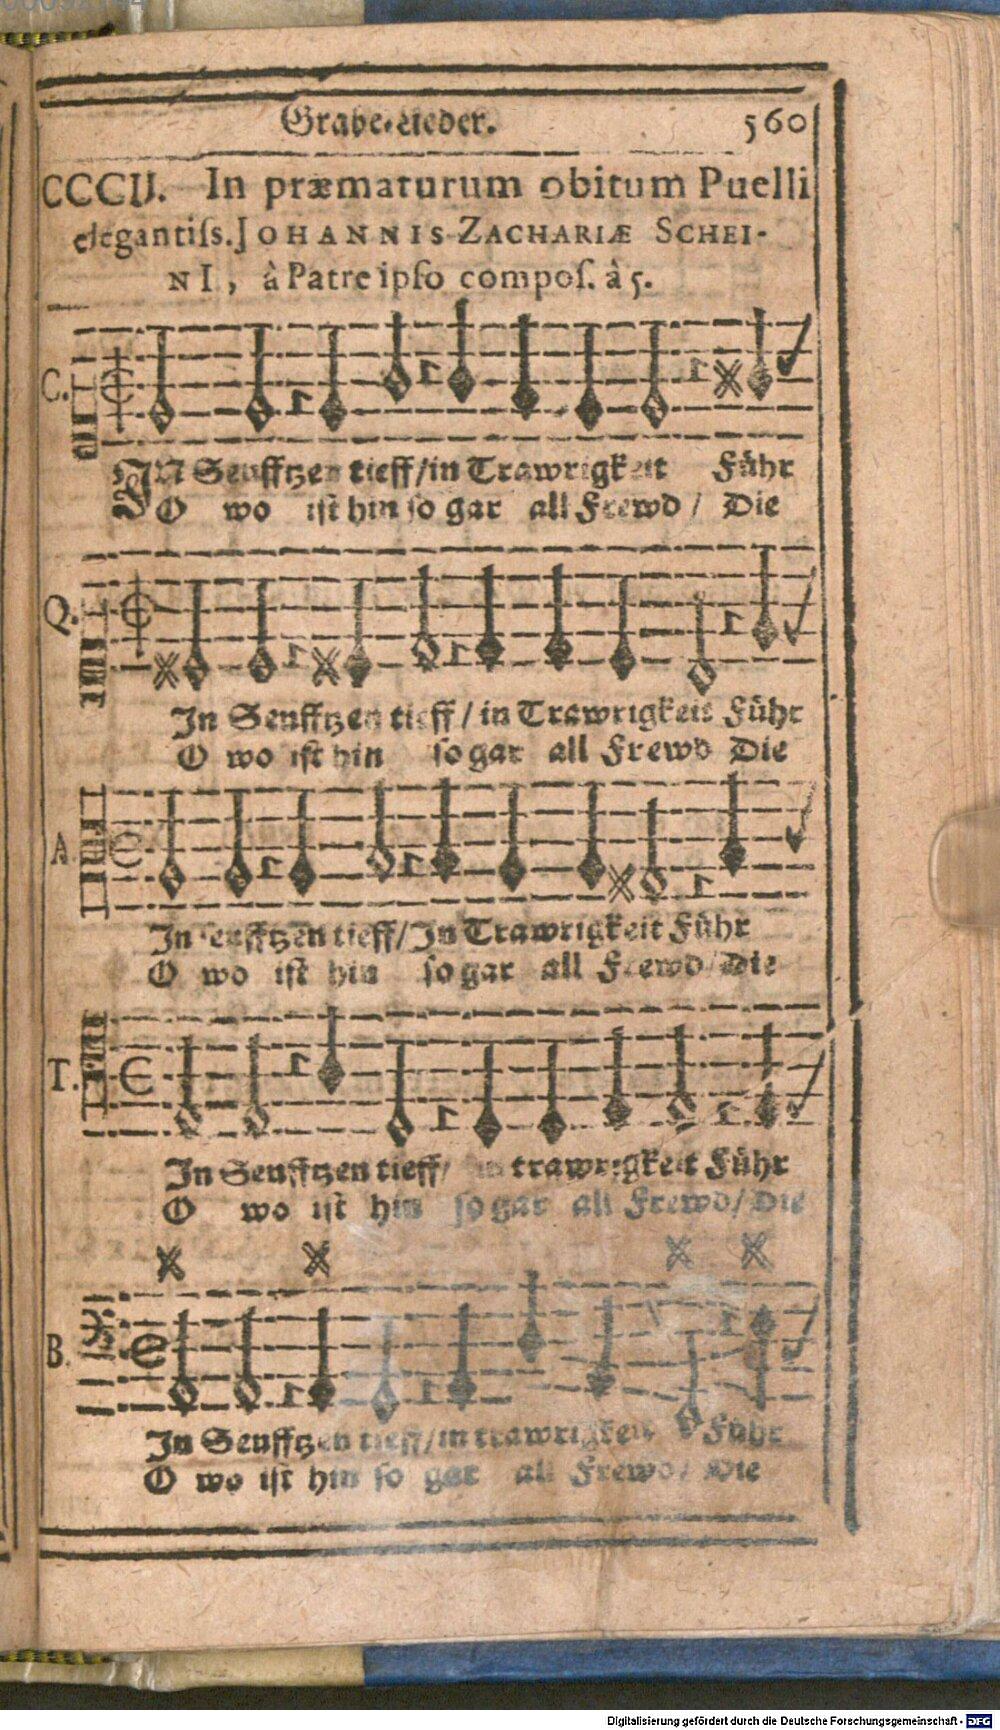 Grabe-Lieder. 560
CCCII. In præmaturum obitum Puelli
elegantiſs. JOHANNIS ZACHARIÆ SCHEI-
NI, à Patre ipſo compoſ. à 5.
C.
IN Seufftzen tieff/in Trawrigkeit Führ
O wo iſt hin ſo gar all Frewd / Die
Q.
In Seufftzen tieff / in Trawrigkeit Führ
O wo iſt hin ſo gar all Frewd Die
A
In ſeufftzen tieff/In Trawrigkeit Führ
O wo iſt hin ſo gar all Frewd/Die
T.
In Seufftzen tieff/ in trawrigkeit Führ
O wo iſt hin ſo gar all Frewd/ Die
B.
In Seufftzen tieff/in trawrigkeit Führ
O wo iſt hin ſo gar all Frewd/ Die
Digitalisierung gefördert durch die Deutsche Forschungsgemeinschaft - DFG